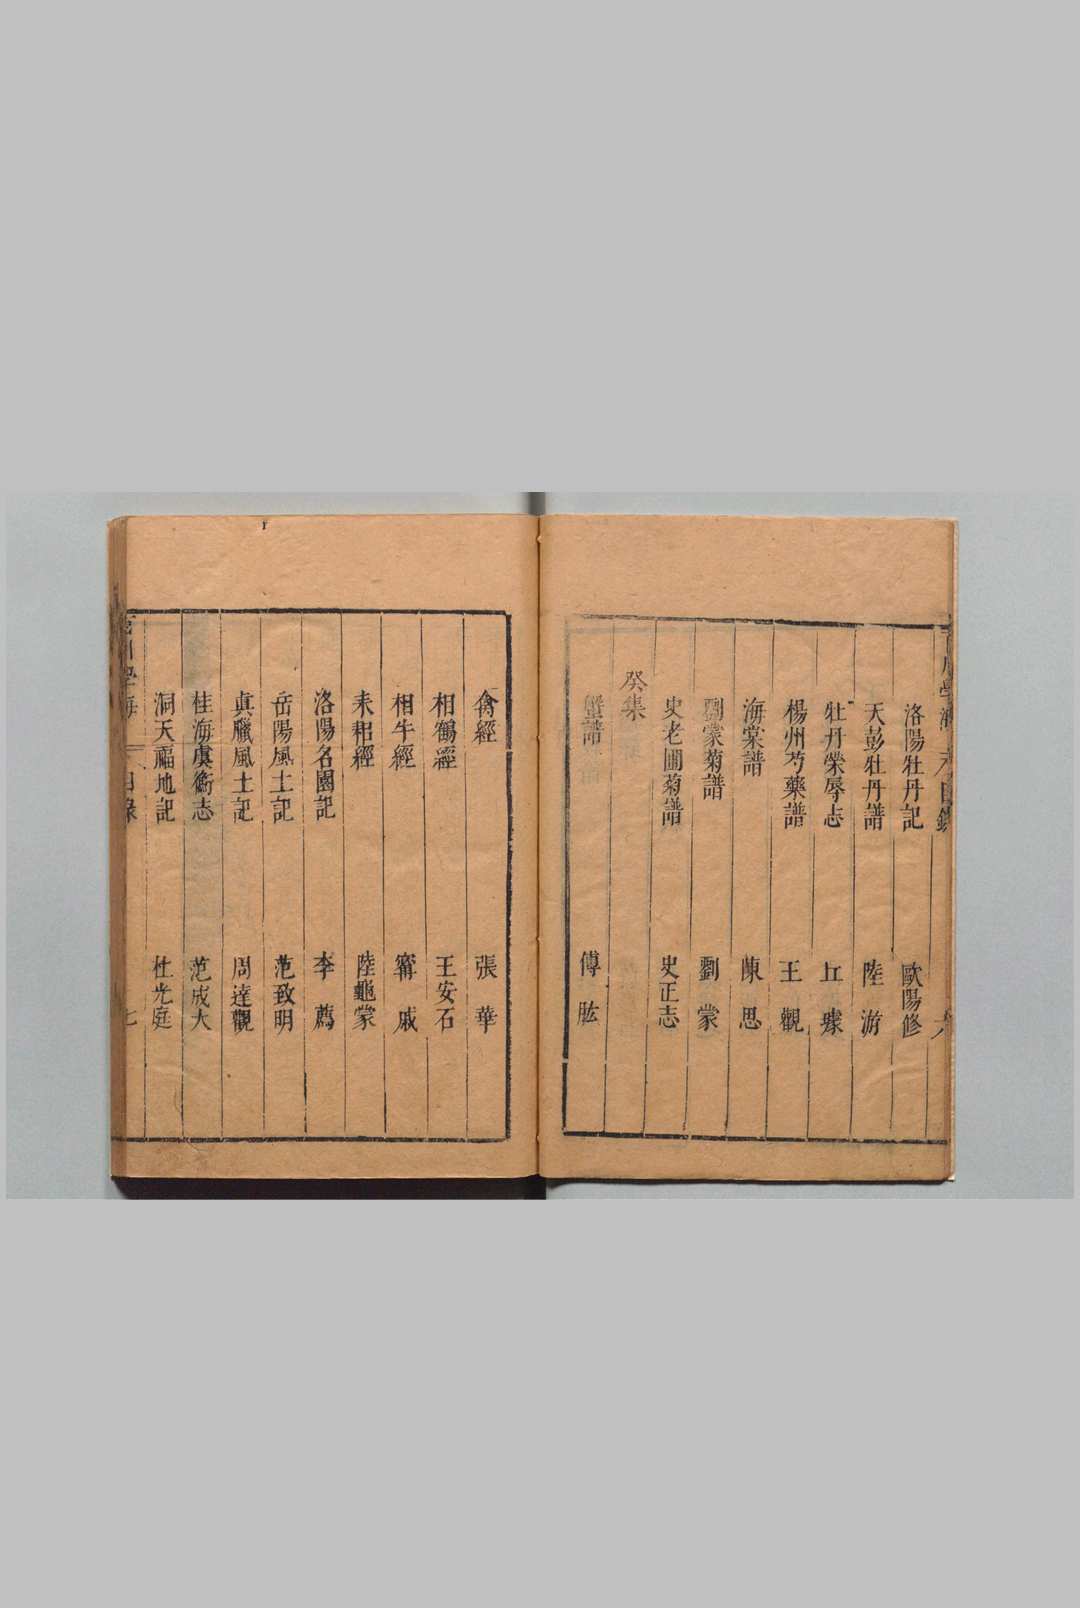 洛陽牡丹記 歐陽修
天彭牡丹譜 陸游
牡丹榮辱志 丘璩
楊州芍藥譜 王觀
海棠譜 陳思
劉蒙菊譜 劉蒙
史老圃菊譜 史正志
癸集
蟹譜 傅肱
禽經 張華
相鶴經 王安石
相牛經 甯戚
耒耜經 陸龜蒙
洛陽名園記 李薦
岳陽風土記 范致明
真臘風土記 周達觀
桂海虞衡志 范成大
洞天福地記 杜光庭
目錄 七